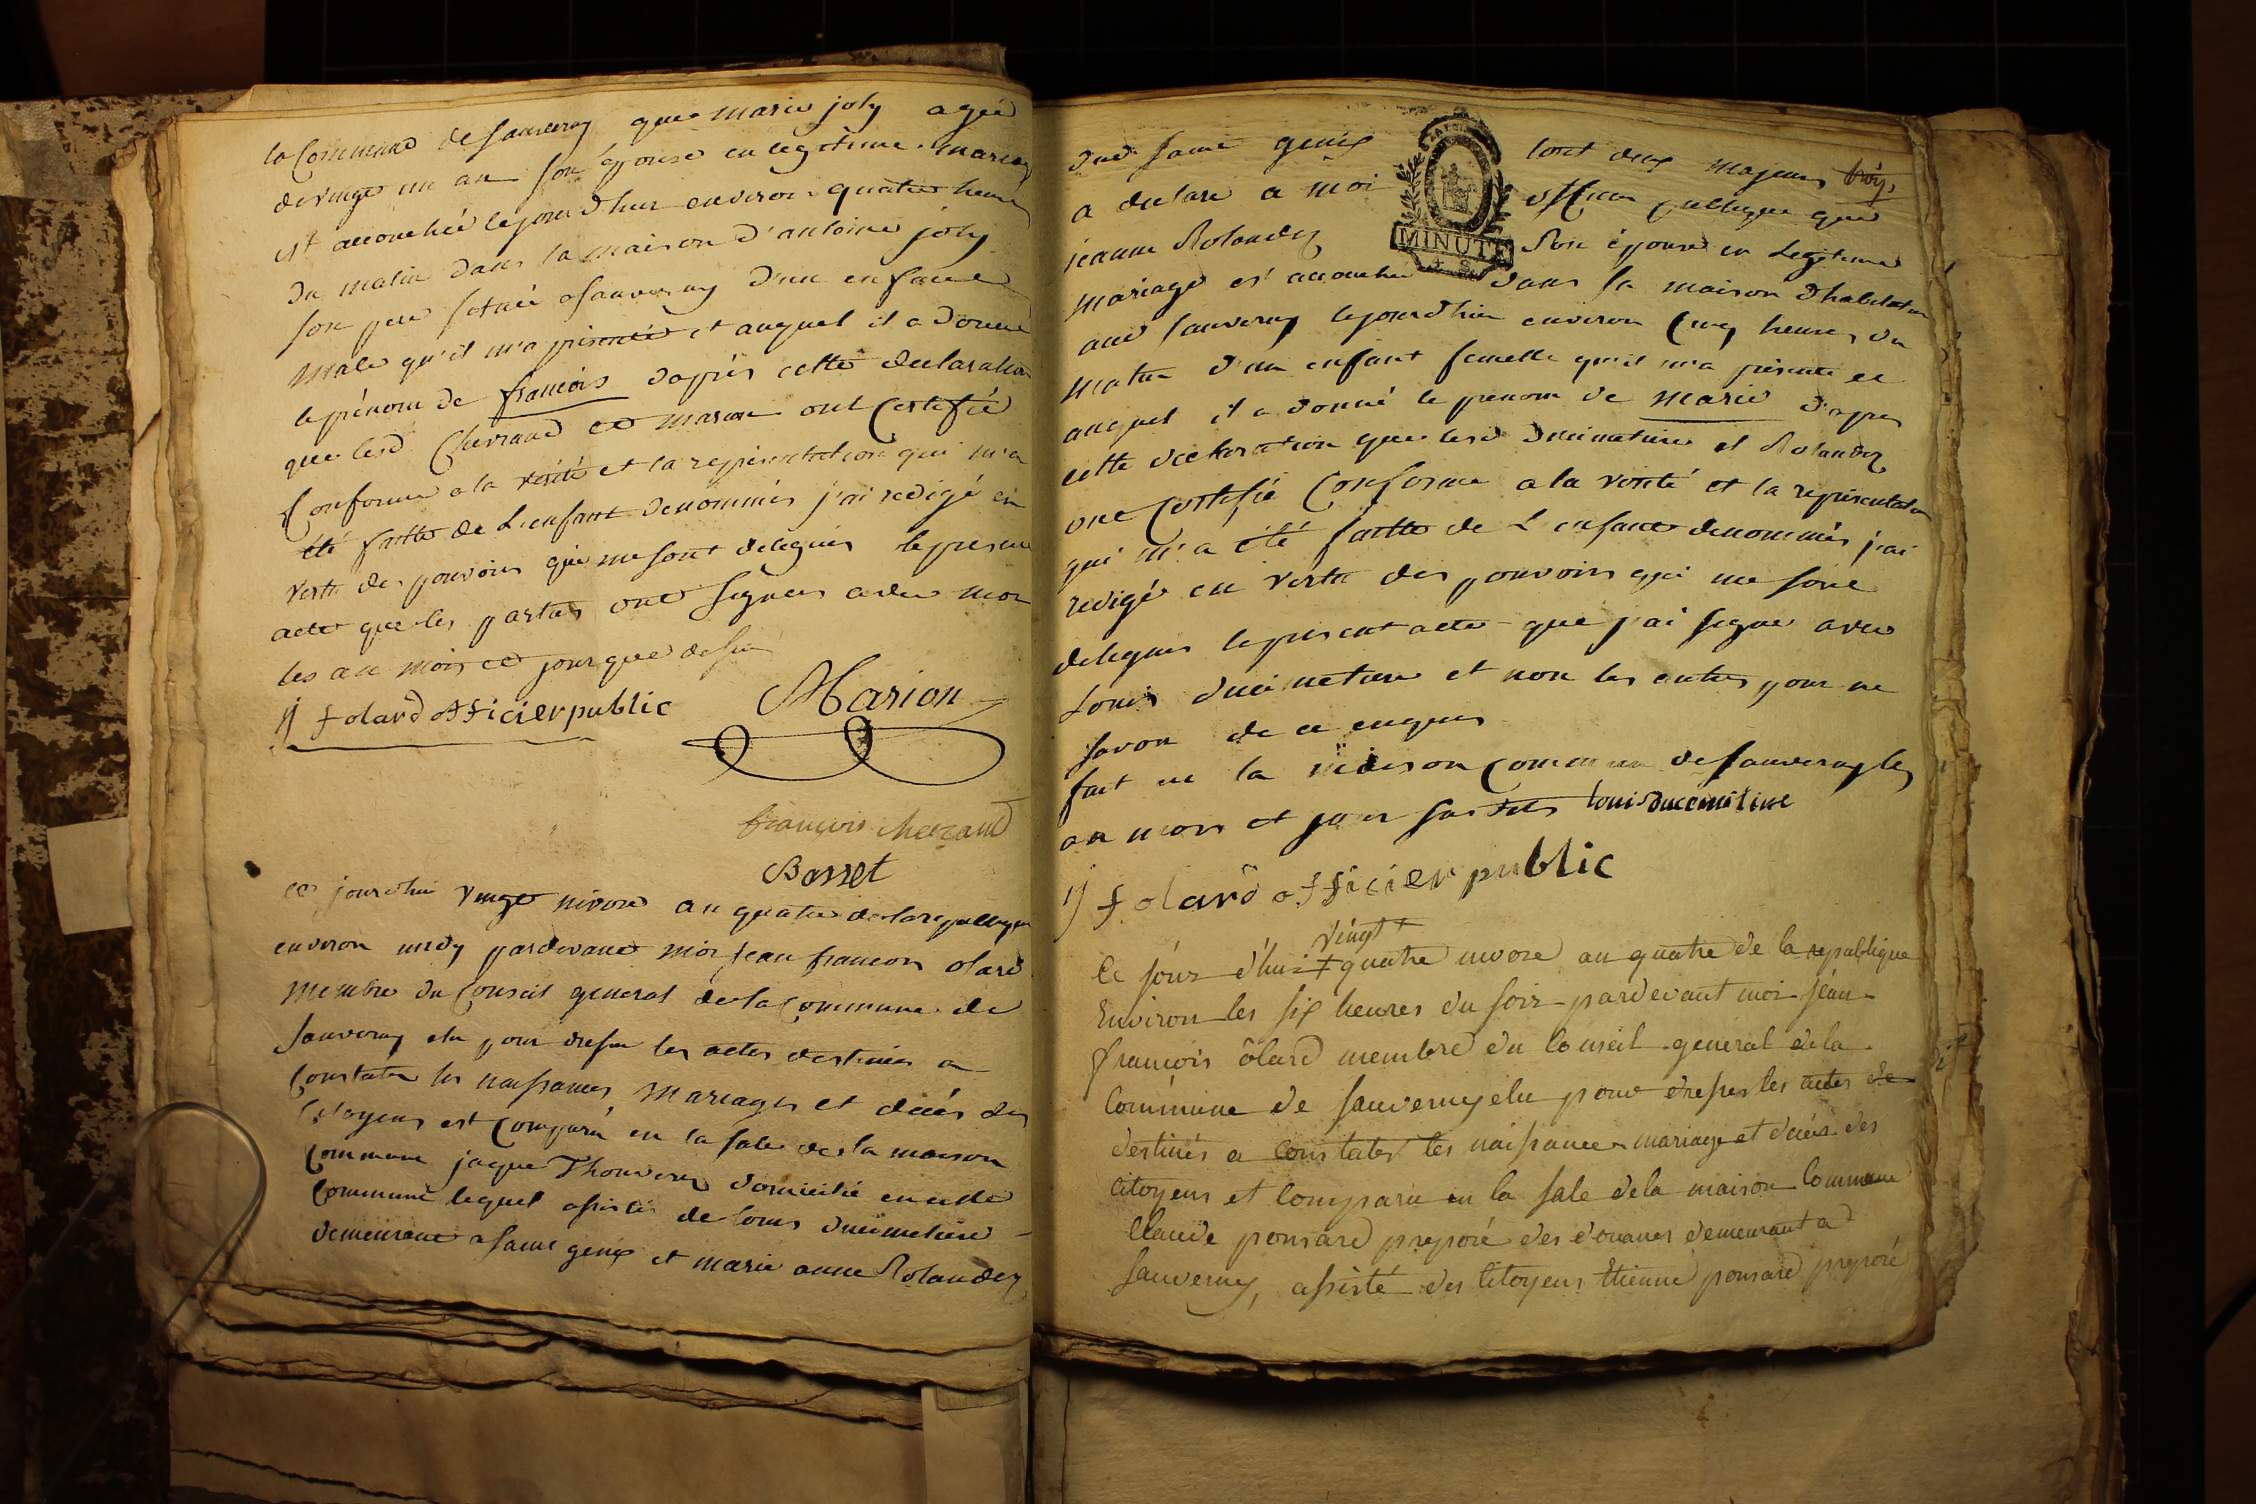 la Commune de sauverny que marie joly agée
de vingt un an son épouse en legitime mariag
est accouchée le jour d'hui environ quatre heures
du matin dans la maison d'antoine joly
son pere situé a sauverny d'un enfant
male qu'il m'a présenté et auquel il a donné
le prénom de françois d'aprés cette declaration
que lesd Chevrand et marion ont Certifié
Conforme a la vérité et la representation qui m'a
été faitte de L'enfant denommés j'ai redigé en
vertu des pouvoirs qui me sont delegués le present
acte que les parties ont signés avec moi
les an mois et jour que dessu
jf olard officier public
Marion
françois chevrand
Bosset
ce jourdhui vingt nivose an quatre de la republiq
environ midy pardevant moi jean francois olard
membre du Conseil general de la Commune de
sauverny elu pour dresser les actes destinés a
Constater les naissances mariages et decés des
Citoyens est Comparu en la sale de la maison
Commune jaque Thouverey domicilié en cette
Commune lequel assisté de louis ducimetiere
demeurant a saint genix et marie anne Rolandez
dud saint genix tout deux majeurs
a declaré a moi officier publique que
jeanne Rolandez son épouse en Legitime
mariage est accouchée dans sa maison d'habitation
aud sauverny le jourdhui environ Cinq heures du
matin d'un enfant femelle qu'il m'a présenté et
auquel il a donné le prenom de marie d'apres
cette declaration que lesd ducimetiere et Rolandez
ont Certifié Conforme a la verité et la representation
qui m'a été faitte de L'enfant denommés j'ai
redigé en vertu des pouvoirs qui me sont
delegués le present acte que j'ai signé avec
Louis ducimetiere et non les autres pour ne
savoir de ce enquis
fait en la maison Commune de sauverny les
an mois et jour susdits louis ducemitiere
jf olard officier public
MINUTE
vingt
Ce jour d'hui quatre nivose an quatre de la republique
Environ les six heures du soir pardevant moi jean
françois olard membre du Conseil general de la
Commune de sauverny elu pour dresser les actes de
destinés a constater les naissance mariage et décés des
citoyens et Comparu en la sale de la maison Commune
Claude ponsard preposé des douanes demeurant a
Sauverny, assisté des Citoyens Etienne ponsard preposé